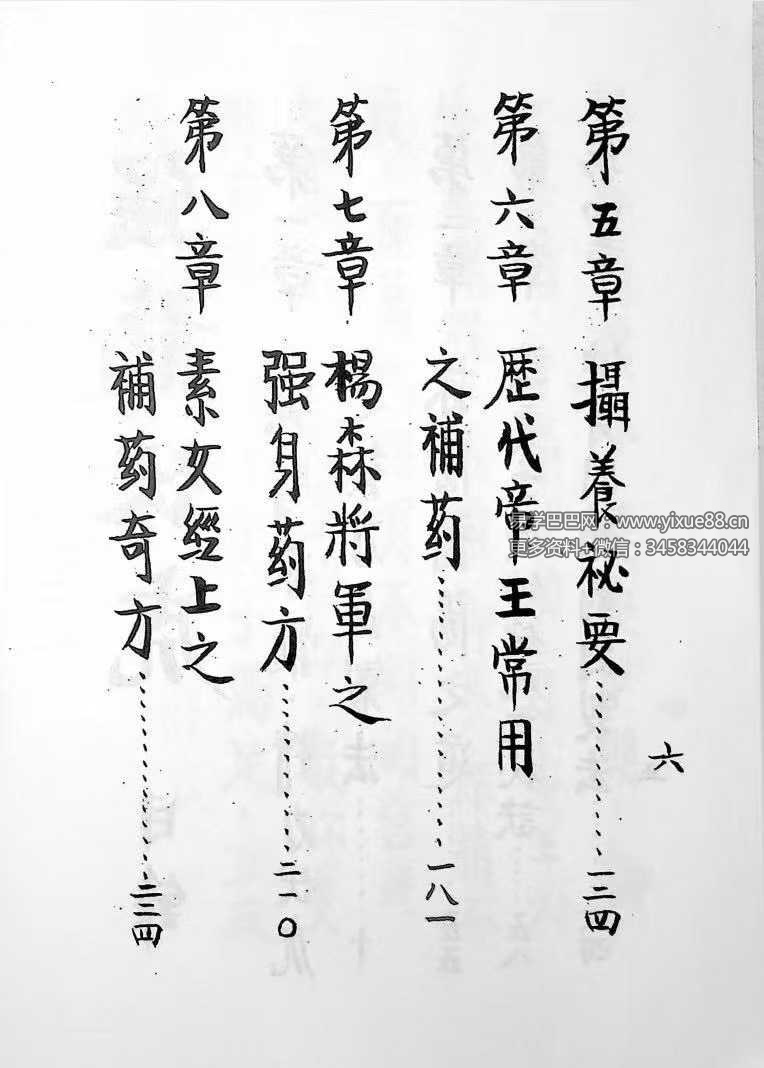 六
第五章 攝養祕要……一三四
第六章 歷代帝王常用
之補药……一八一
第七章 楊森將軍之
强身药方……二一〇
第八章 素女經上之
補药奇方……二三四
易学巴巴网：www.yixue88.cn
更多资料+微信：3458344044